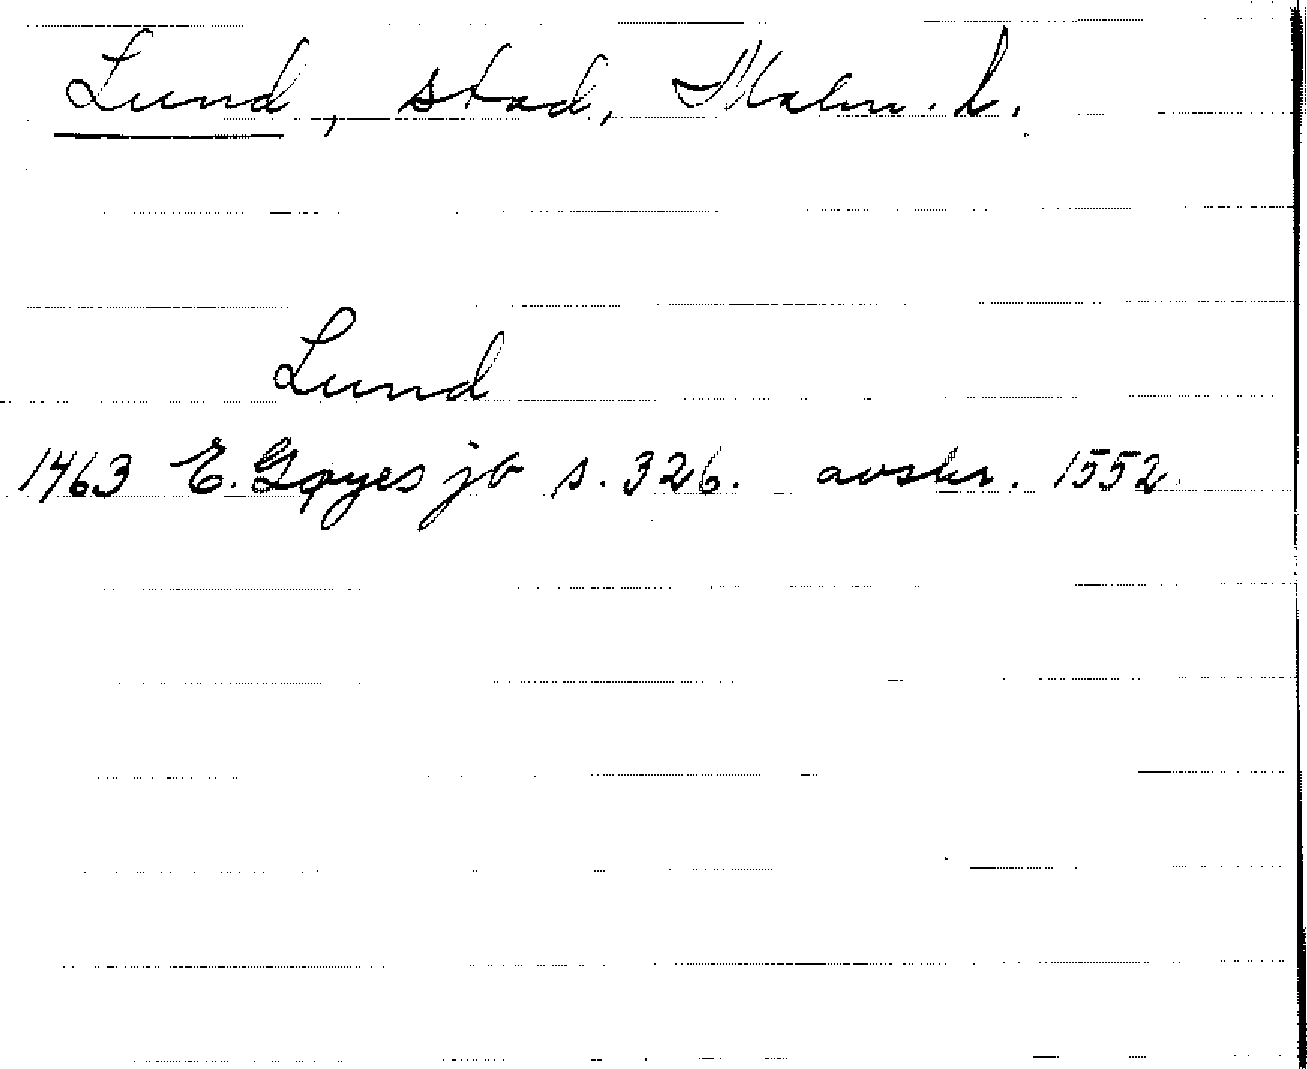 Lund, stad, Malm. l.
Lund
1463 E. Gøyes jb s. 326. avskr. 1552